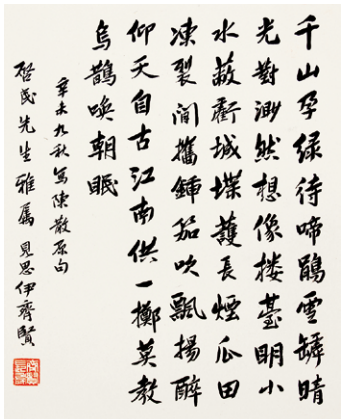 千山孕緑待啼鵑雪罅晴
光對渺然想像楼臺明小
水蔽虧城堞護長煙瓜田
凍裂閒攜鍤笳吹飄揚醉
仰天自古江南供一擲莫教
烏鵲喚朝眠
辛未九秋寫陳散原句
啓民先生雅属 見思伊齊賢